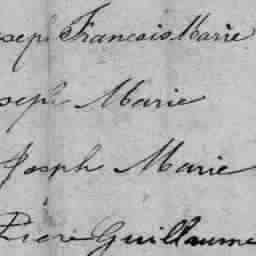 oseph Francois Marie
oseph Marie
Joseph Marie
Pierre Guillaume